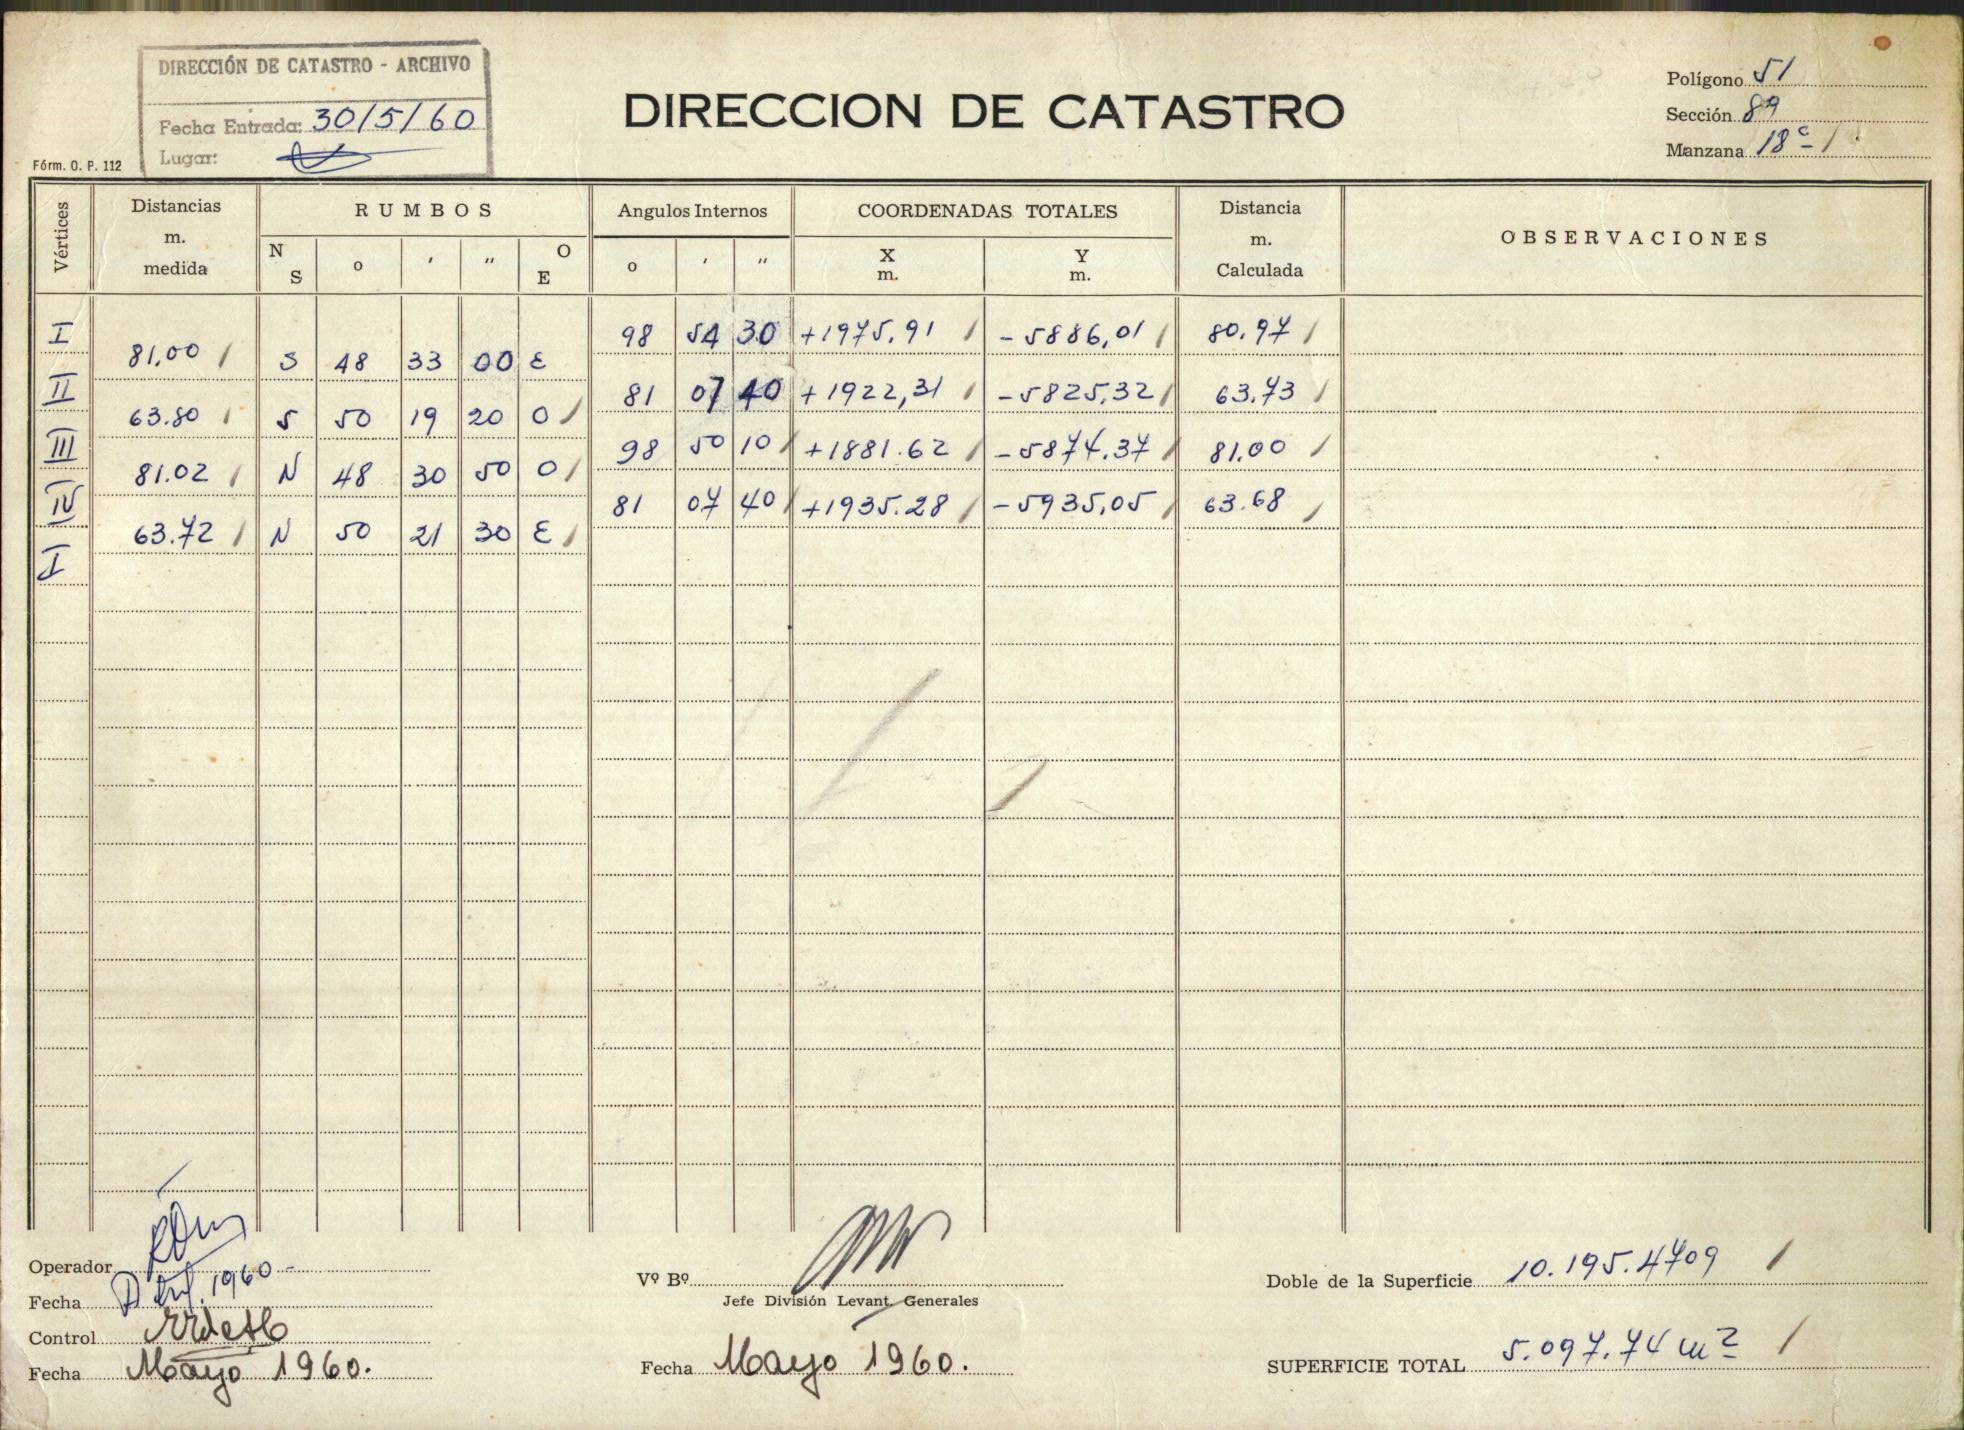 DIRECCIÓN DE CATASTRO - ARCHIVO
Fecha Entrada: 30/5/60
Lugar:
Fórm. O. P. 112
DIRECCION DE CATASTRO
Polígono 51
Sección 89
Manzana 18c-1
Vértices
Distancias m. medida
RUMBOS
N S o ' " O E
Angulos Internos
o ' "
COORDENADAS TOTALES
X m. Y m.
Distancia m. Calculada
OBSERVACIONES
I 98 54 30 +1975.91 -5886,01 80.97
81.00 S 48 33 00 E
II 81 07 40 +1922,31 -5825.32 63.73
63.80 S 50 19 20 O
III 98 50 10 +1881.62 -5874.37 81.00
81.02 N 48 30 50 O
IV 81 07 40 +1935.28 -5935,05 63.68
63.72 N 50 21 30 E
I
Operador
Fecha 1960-
Control
Fecha Mayo 1960.
Vº Bº
Jefe División Levant. Generales
Fecha Mayo 1960.
Doble de la Superficie 10.195.4709
SUPERFICIE TOTAL 5.097.74 m2